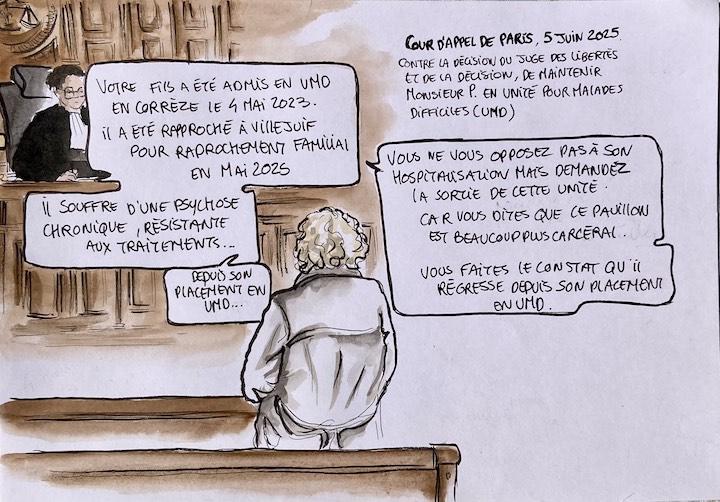 COUR D'APPEL DE PARIS, 5 JUIN 2025.
CONTRE LA DÉCISION DU JUGE DES LIBERTÉS
ET DE LA DÉCISION, DE MAINTENIR
MONSIEUR P. EN UNITÉ POUR MALADES
DIFFICILES (UMD)
VOTRE FILS A ÉTÉ ADMIS EN UMD
EN CORRÈZE LE 4 MAI 2023.
IL A ÉTÉ RAPPROCHÉ À VILLEJUIF
POUR RAPROCHEMENT FAMILIAL
EN MAI 2025
IL SOUFFRE D'UNE PSYCHOSE
CHRONIQUE, RÉSISTANTE
AUX TRAITEMENTS...
DEPUIS SON
PLACEMENT EN
UMD...
VOUS NE VOUS OPPOSEZ PAS À SON
HOSPITALISATION MAIS DEMANDEZ
LA SORTIE DE CETTE UNITÉ.
CAR VOUS DITES QUE CE PAVILLON
EST BEAUCOUP PLUS CARCÉRAL.
VOUS FAITES LE CONSTAT QU'IL
RÉGRESSE DEPUIS SON PLACEMENT
EN UMD.